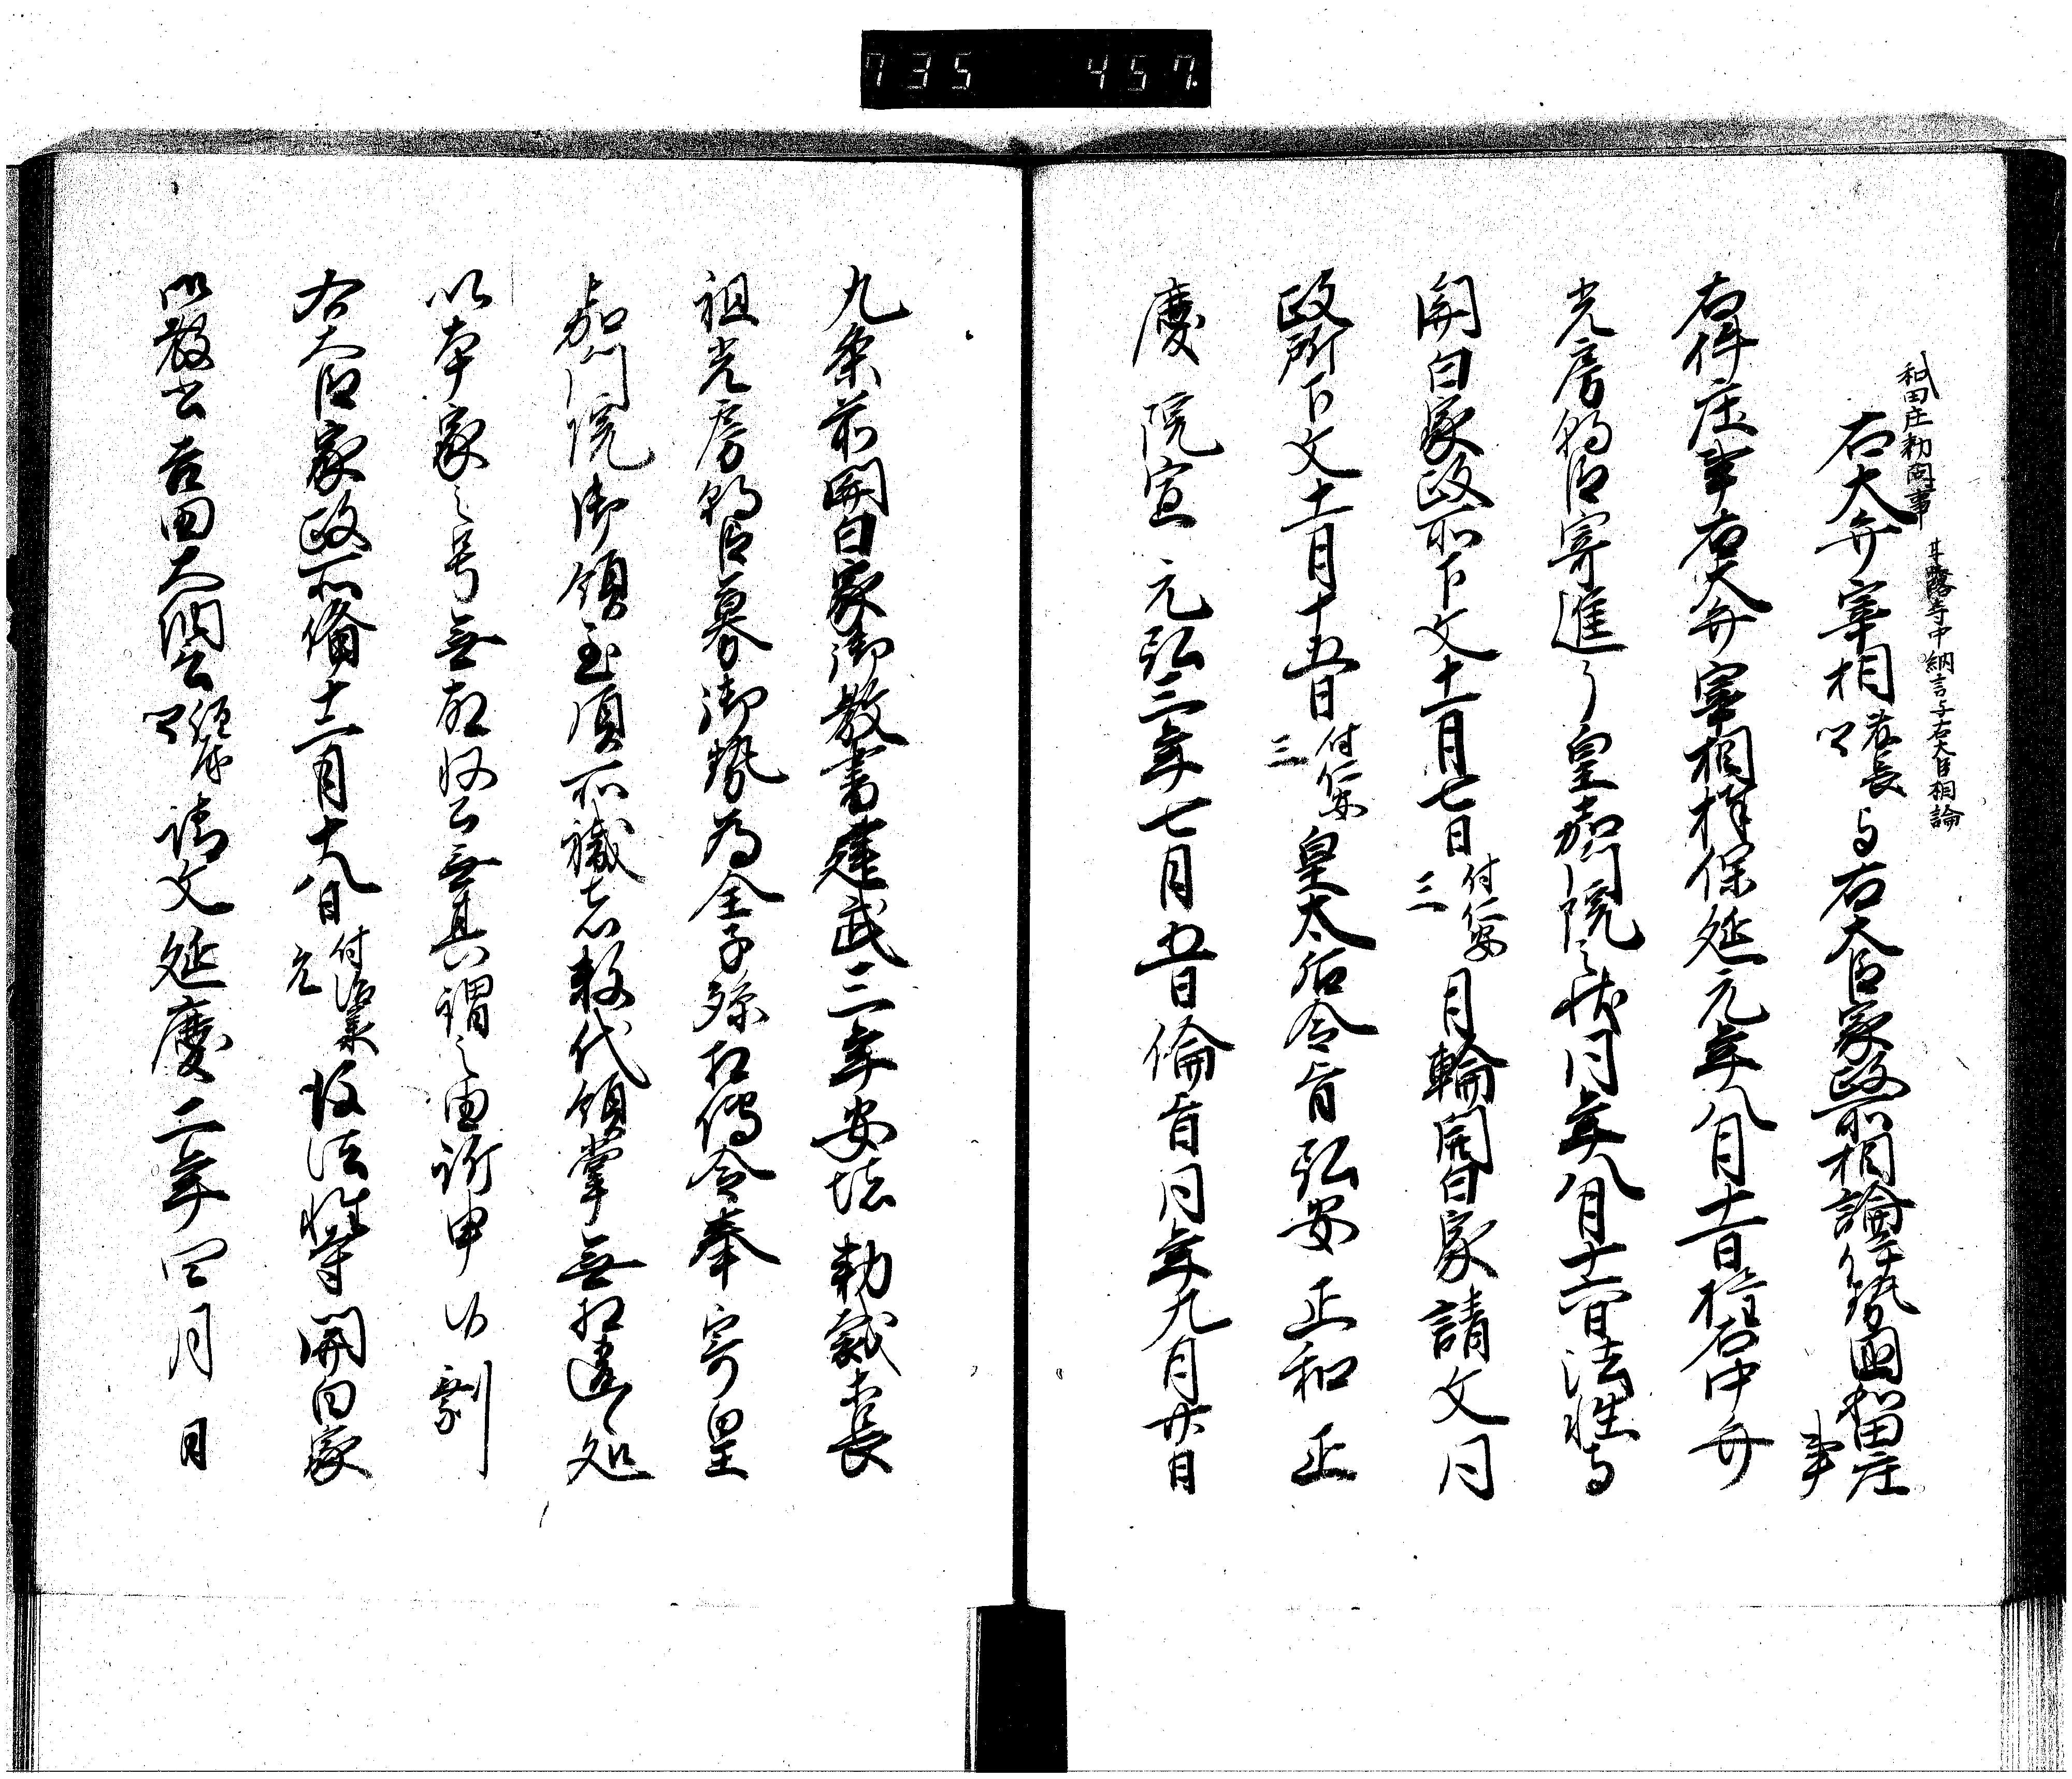 735 457
和田庄勅問事 甘露寺中納言与右大臣相論
右大弁宰相藤長卿与右大臣家政所相論伊勢国和田庄事
右件庄事右大弁宰相捧保延元年八月十一日権右中弁
光房朝臣寄進于皇嘉門院之状同年八月十六日法性寺
関白家政所下文十一月七日付仁安三月輪関白家請文同
政所下文十一月十五日付仁安三皇太后令旨弘安正和正
慶院宣元弘三年七月五日綸旨同年九月廿日
九条前関白家御教書建武三年安堵勅裁等長
祖光房朝臣募御勢為全子孫相伝令奉寄皇
嘉門院御領至須所職者数代領掌無相違処
以本家之号無故収公無其謂之由訴申仍劃
右大臣家政所備十二月十八日付治承元後法性寺関白家
御教書吉田大納言経房卿請文延慶二年四月日